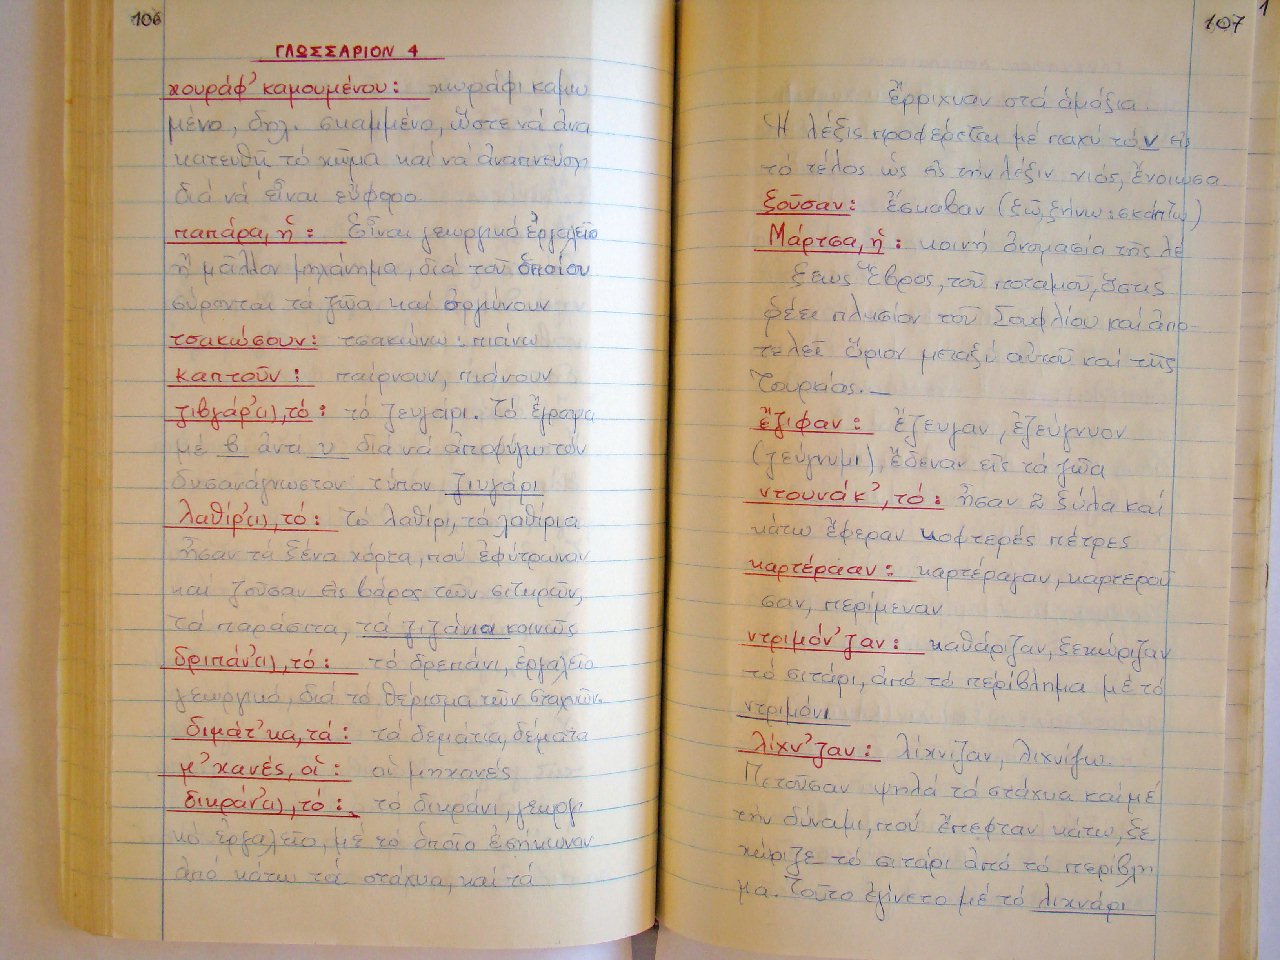 106
ΓΛΩΣΣΑΡΙΟΝ 4
χουράφ' καμουμένου: χωράφι καμω
μένο, δηλ. σκαμμένο, ὥστε νά ἀνα
κατευθῆ τό χῶμα καί νά ἀναπνεύση,
διά νά εἶναι εὔφορο
παπάρα, ἡ: Εἶναι γεωργικό ἐργαλεῖο
ἤ μᾶλλον μηχάνημα, διά τοῦ ὁποίου
σύρονται τά ζῶα καί ὀργώνουν
τσακώσουν: τσακώνω: πιάνω
καπτοῦν: παίρνουν, πιάνουν
ζιβγάρ'(ι), τό: τό ζευγάρι. Τό ἔγραψα
μέ β ἀντί υ διά νά ἀποφύγω τόν
δυσανάγνωστον τύπον ζιυγάρι
λαθίρ'(ι), τό: Τό λαθίρι, τά λαθίρια
ἦσαν τά ξένα χόρτα, πού ἐφύτρωναν
καί ζοῦσαν εἰς βάρος τῶν σιτηρῶν,
τά παράσιτα, τά ζιζάνια κοινῶς
δριπάν'(ι), τό: τό δρεπάνι, ἐργαλεῖο
γεωργικό, διά τό θέρισμα τῶν σταχυῶν.
διμάτ'κα, τά: τά δεμάτια, δέματα
μ'χανές, οἱ: οἱ μηχανές
δικράν'(ι), τό: τό δικράνι, γεωργι
κό ἐργαλεῖο, μέ τό ὁποῖο ἐσήκωναν
ἀπό κάτω τά στάχυα, καί τά
107
1
ἔρριχναν στά ἀμάξια.
Ἡ λέξις προφέρεται μέ παχύ τό ν εἰς
τό τέλος ὡς εἰς τήν λέξιν νιός, ἔνοιωσα
ξοῦσαν: ἔσκαβαν (ξῶ, ξήνω: σκάπτω)
Μάρτσα, ἡ: κοινή ὀνομασία τῆς λέ
ξεως Ἕβρος, τοῦ ποταμοῦ, ὅστις
ρέει πλησίον τοῦ Σουφλίου καί ἀπο-
τελεῖ ὅριον μεταξύ αὐτοῦ καί τῆς
Τουρκίας.—
ἔζιφαν: ἔζευγαν, ἐζεύγνυον
(ζεύγνυμι), ἔδεναν εἰς τά ζῶα
ντουνάκ', τό: ἦσαν 2 ξύλα καί
κάτω ἔφεραν κοφτερές πέτρες
καρτέραααν: καρτέραγαν, καρτεροῦ
σαν, περίμεναν
ντριμόν'ζαν: καθάριζαν, ξεχώριζαν
τό σιτάρι, ἀπό τό περίβλημα μέ τό
ντριμόνι
λίχν'ζαν: λίχνιζαν, λιχνίζω.
Πετοῦσαν ψηλά τά στάχυα καί μέ
τήν δύναμι, πού ἔπεφταν κάτω, ξε
χώριζε τό σιτάρι ἀπό τό περίβλη
μα. Τοῦτο ἐγίνετο μέ τό λιχνάρι